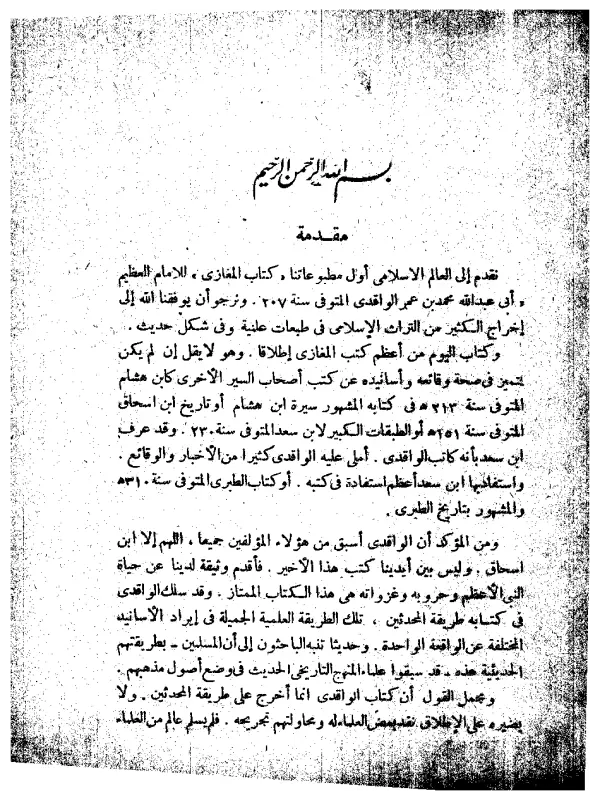 بسم الله الرحمن الرحيم
مقدمة
نقدم إلى العالم الاسلامى أول مطبوعاتنا « كتاب المغازى » للامام العظيم
« أبى عبدالله محمد بن عمر الواقدى المتوفى سنة ٢٠٧ . ونرجو أن يوفقنا الله إلى
إخراج الكثير من التراث الإسلامى فى طبعات علنية وفى شكل حديث .
وكتاب اليوم من أعظم كتب المغازى إطلاقا . وهو لا يقل إن لم يكن
يتميز فى صحة وقائعه وأسانيده عن كتب أصحاب السير الأخرى كابن هشام
المتوفى سنة ٢١٣ ه فى كتابه المشهور سيرة ابن هشام أو تاريخ ابن اسحاق
المتوفى سنة ٢٥١ ه أو الطبقات الكبير لابن سعد المتوفى سنة ٢٣٠ . وقد عرف
ابن سعد بأنه كاتب الواقدى . أملى عليه الواقدى كثيرا من الأخبار والوقائع .
واستفاد بها ابن سعد أعظم استفادة فى كتبه . أو كتاب الطبرى المتوفى سنة ٣١٠ ه
والمشهور بتاريخ الطبرى .
ومن المؤكد أن الواقدى أسبق من هؤلاء المؤلفين جميعا ، اللهم إلا ابن
اسحاق . وليس بين أيدينا كتب هذا الأخير . فأقدم وثيقة لدينا عن حياة
النبى الأعظم وحروبه وغزواته هى هذا الكتاب الممتاز . وقد سلك الواقدى
فى كتابه طريقة المحدثين ، تلك الطريقة العلمية الجميلة فى إيراد الأسانيد
المختلفة عن الواقعة الواحدة . وحديثا تنبه الباحثون إلى أن المسلمين - بطريقتهم
الحديثية هذه - قد سبقوا علماء المنهج التاريخى الحديث فى وضع أصول مذهبهم .
ومجمل القول أن كتاب الواقدى انما أخرج على طريقة المحدثين . ولا
يضيره على الإطلاق نقد بعض العلماء له ومحاولتهم تجريحه . فلم يسلم عالم من العلماء